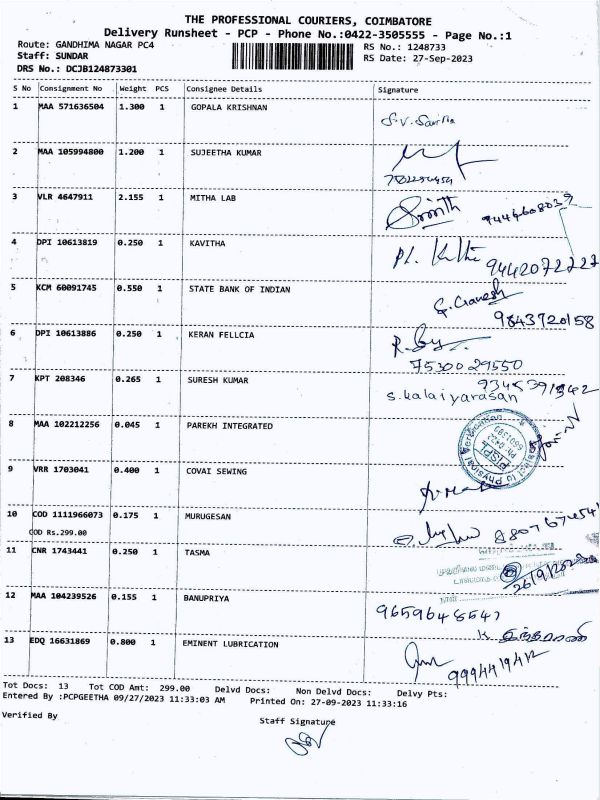 THE PROFESSIONAL COURIERS, COIMBATORE
Delivery Runsheet - PCP - Phone No.:0422-3505555 - Page No.:1
Route: GANDHIMA NAGAR PC4 RS No.: 1248733
Staff: SUNDAR RS Date: 27-Sep-2023
DRS No.: DCJB124873301
S No Consignment No Weight PCS Consignee Details Signature
1 MAA 571636504 1.300 1 GOPALA KRISHNAN
S.V. Saritha
2 MAA 105994800 1.200 1 SUJEETHA KUMAR
3 VLR 4647911 2.155 1 MITHA LAB
9444608039
4 DPI 10613819 0.250 1 KAVITHA
9442072222
5 KCM 60091745 0.550 1 STATE BANK OF INDIAN
G. Ganesh
9843720158
6 DPI 10613886 0.250 1 KERAN FELLCIA
7530029550
7 KPT 208346 0.265 1 SURESH KUMAR
9345391342
s.kalaiyarasan
8 MAA 102212256 0.045 1 PAREKH INTEGRATED
9 VRR 1703041 0.400 1 COVAI SEWING
10 COD 1111966073 0.175 1 MURUGESAN
8807674541
COD Rs.299.00
11 CNR 1743441 0.250 1 TASMA
26/9/2023
12 MAA 104239526 0.155 1 BANUPRIYA
9659648547
13 EDQ 16631869 0.800 1 EMINENT LUBRICATION
Tot Docs: 13 Tot COD Amt: 299.00 Delvd Docs: Non Delvd Docs: Delvy Pts:
Entered By :PCPGEETHA 09/27/2023 11:33:03 AM Printed On: 27-09-2023 11:33:16
Verified By Staff Signature